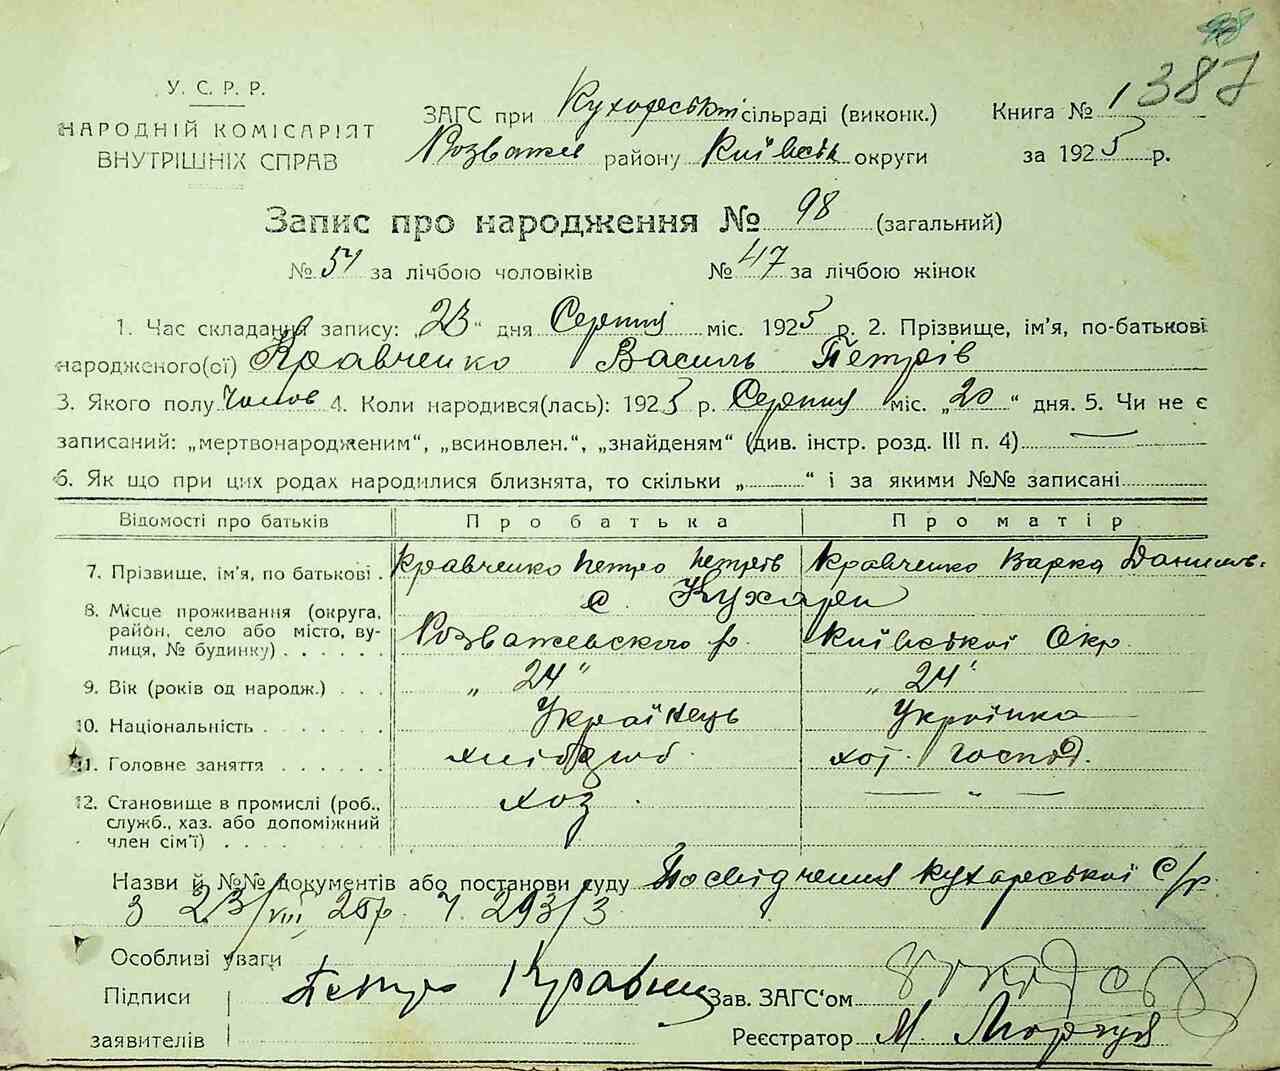 98
1387
У. С. Р. Р.
НАРОДНІЙ КОМІСАРІЯТ
ВНУТРІШНІХ СПРАВ
ЗАГС при Кухарській сільраді (виконк.)
Розважев району Київськ округи
Книга №
за 1925 р.
Запис про народження № 98 (загальний)
№ 51 за лічбою чоловіків № 47 за лічбою жінок
1. Час складання запису: „23“ дня Серпня міс. 1925 р. 2. Прізвище, ім'я, по-батькові
народженого(ої) Кравченко Василь Петрів
3. Якого полу Чолов 4. Коли народився(лась): 1925 р. Серпня міс. „20“ дня. 5. Чи не є
записаний: „мертвонародженим“, „всиновлен.“, „знайденям“ (див. інстр. розд. III п. 4) —
6. Як що при цих родах народилися близнята, то скільки „ “ і за якими №№ записані
Відомості про батьків Про батька Про матір
7. Прізвище, ім'я, по батькові . Кравченко Петро Петрів Кравченко Варка Даниль.
8. Місце проживання (округа, с. Кухари
район, село або місто, ву- Розважевского р. Київської Окр.
лиця, № будинку) . . . . . .
9. Вік (років од народж.) . . . „ 24 “ „ 24 “
10. Національність . . . . . . . Українець Українка
11. Головне заняття . . . . . . хлібороб. хот. господ.
12. Становище в промислі (роб., хоз — „ —
служб., хаз. або допоміжний
член сім'ї) . . . . . . . .
Назви й №№ документів або постанови суду Посвідчення Кухарської С/р.
з 23/VIII 25р. Ч. 293/3
Особливі уваги
Підписи Петро Зав. ЗАГС'ом
заявителів Реєстратор М.